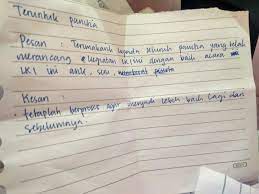 Teruntuk panitia
Pesan : Terimakasih kepada seluruh panitia yang telah
merancang kegiatan LKI ini dengan baik, acara
LKI ini asik, seru,
Kesan :
• tetaplah berproses agar menjadi lebih baik lagi dari
sebelumnya.